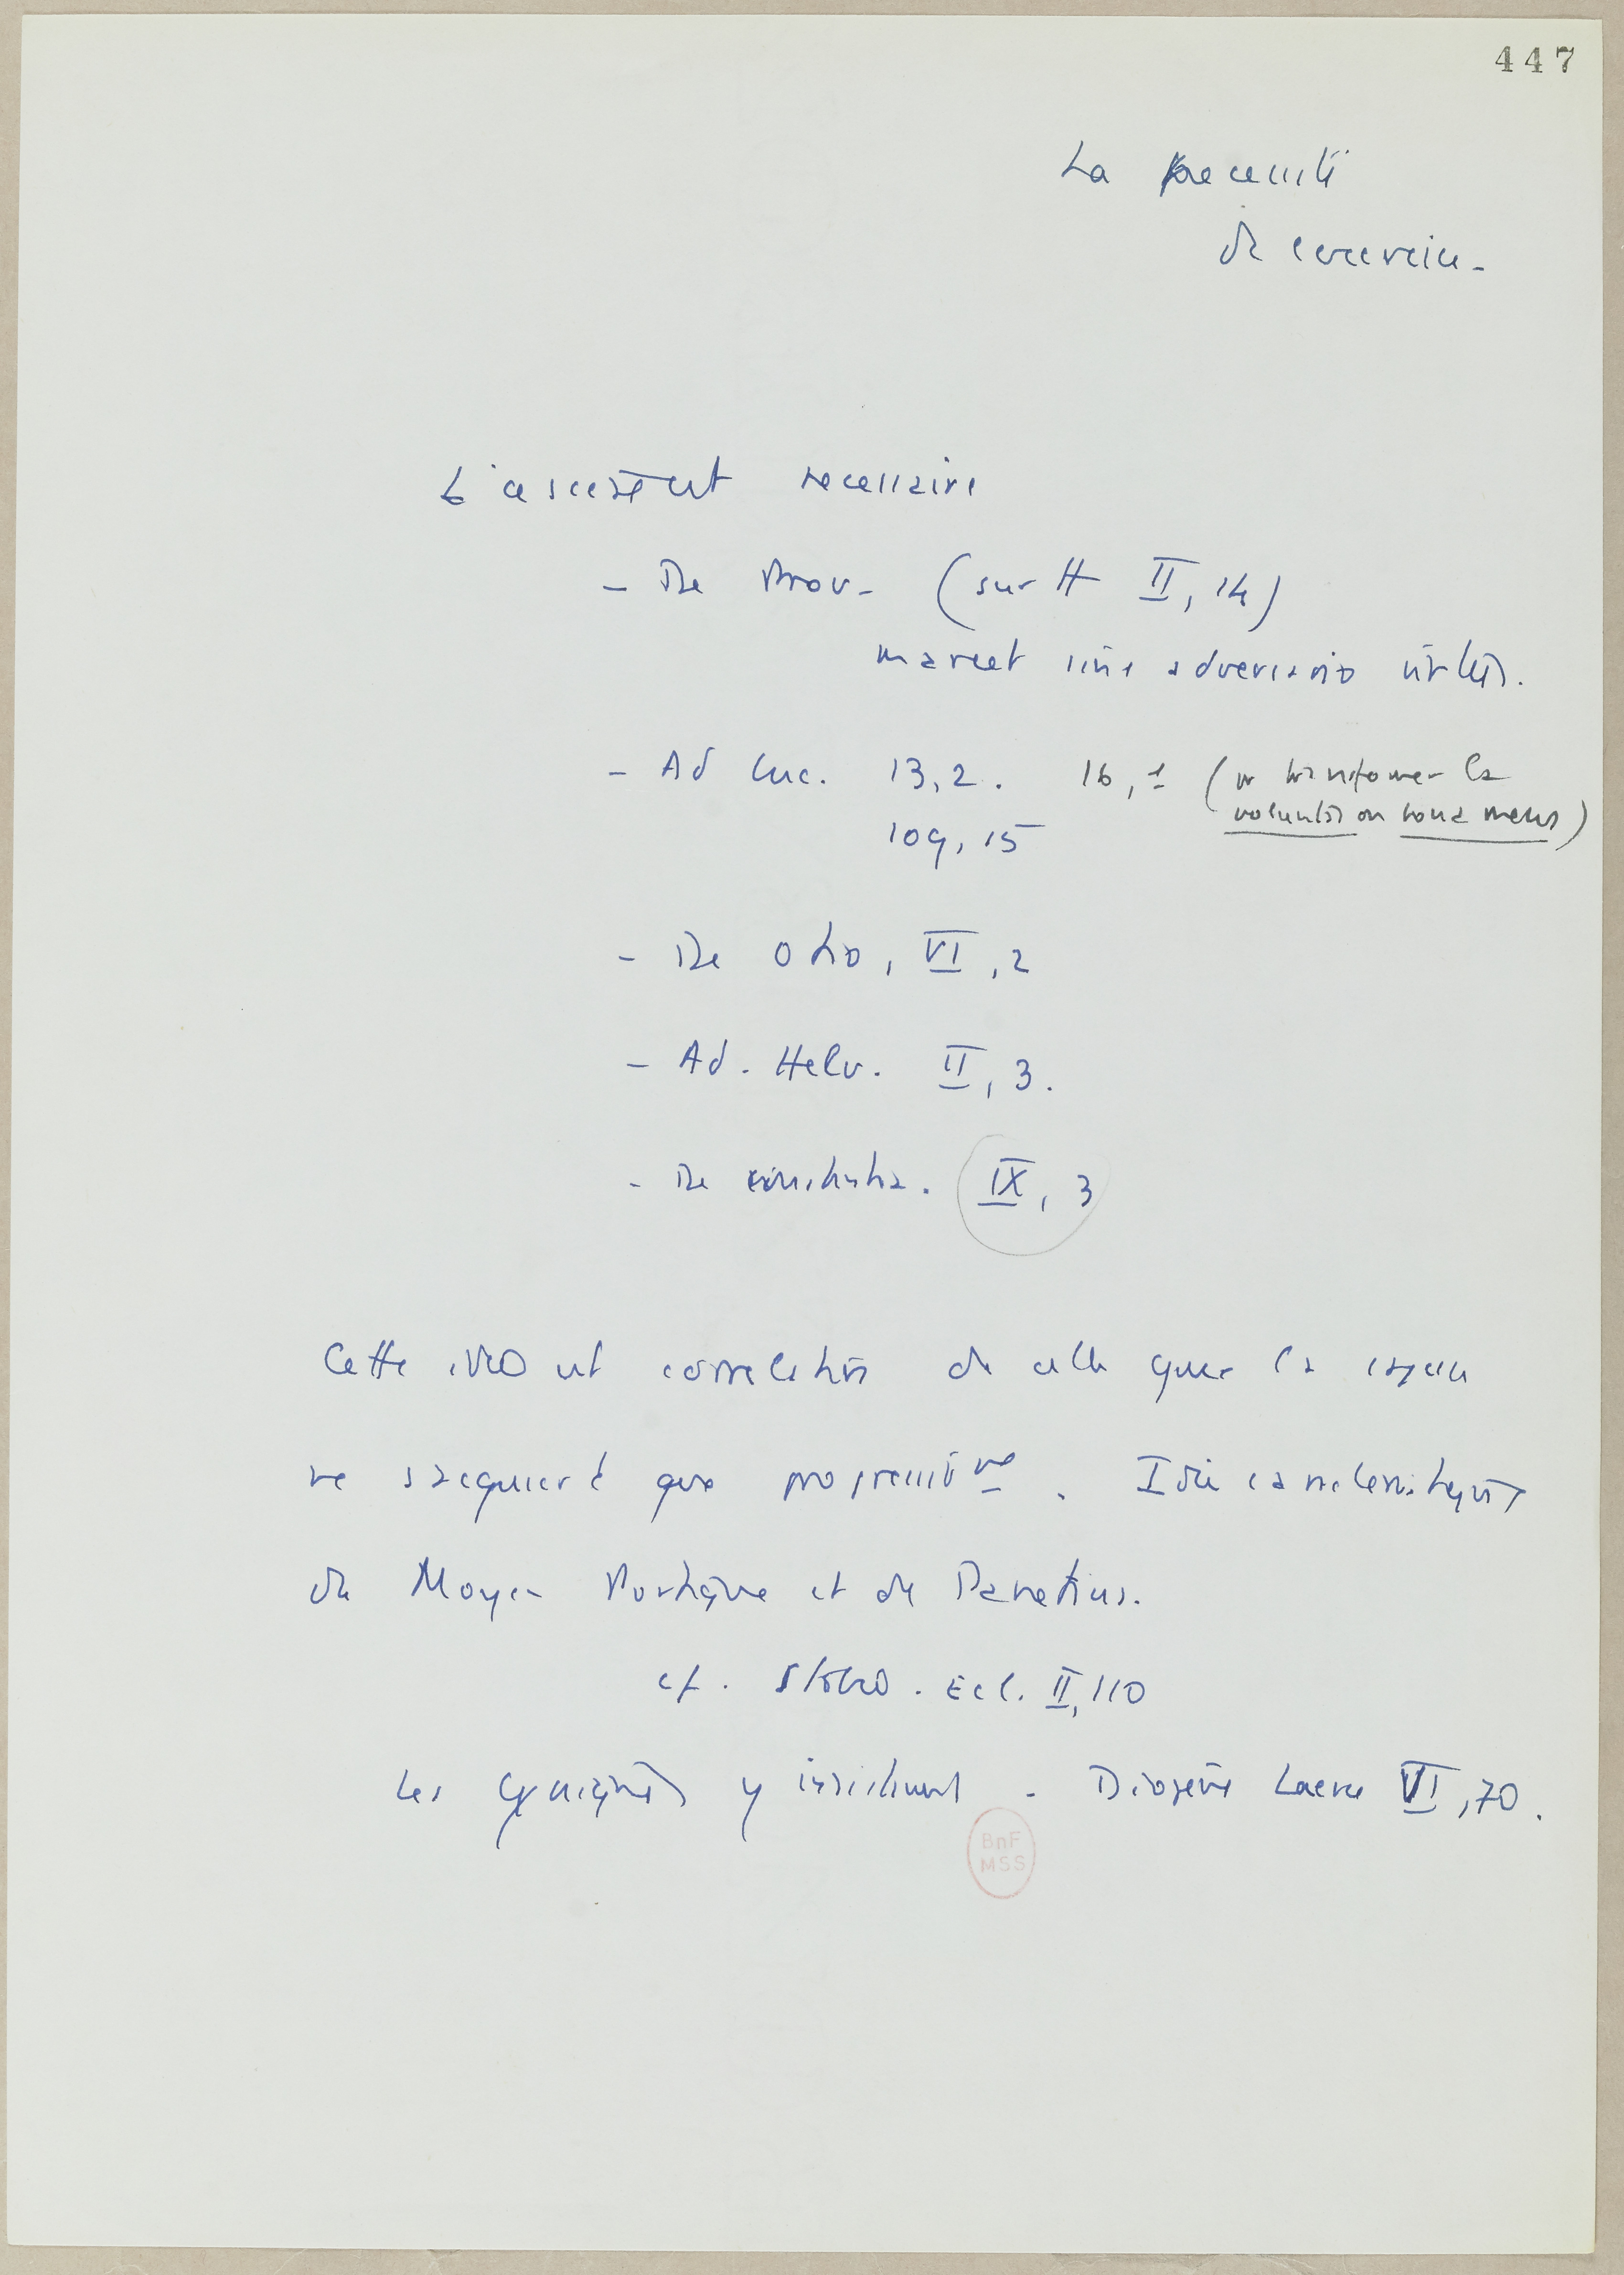 447
La nécessité
de l'exercice.
L'ascèse est nécessaire
- De Prov. (surtt II, 14)
marcet sine adversario virtus.
- Ad Luc. 13, 2. 16, 1 (transformer la
voluntas en bona mens)
109, 15
- De Otio, VI, 2
- Ad. Helv. II, 3.
- De constantia. IX, 3
Cette idée est corrélative de celle que la sagesse
ne s'acquiert que progressivt. Idée caractéristique
du Moyen Portique et de Panetius.
cf. Stobée. Ecl. II, 110
Les Cyniques y insistent. Diogène Laerce VI, 70.
BnF
MSS